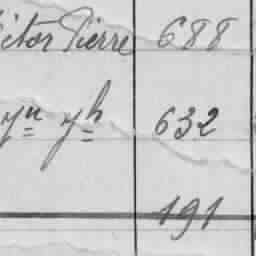 ictor Pierre 688
yn yh 632
191